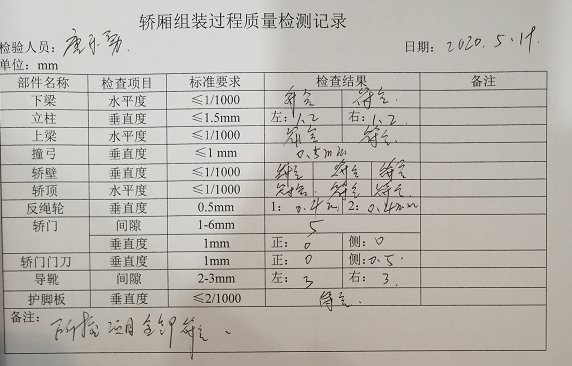 轿厢组装过程质量检测记录
检验人员: 日期: 2020.5.19.
单位: mm
部件名称 检查项目 标准要求 检查结果 备注
下梁 水平度 ≤1/1000 符合 符合.
立柱 垂直度 ≤1.5mm 左: 1.2 右: 1.2
上梁 水平度 ≤1/1000 符合 符合.
撞弓 垂直度 ≤1 mm 0.5mm
轿壁 垂直度 ≤1/1000 符合 符合 符合
轿顶 水平度 ≤1/1000 符合. 符合 符合.
反绳轮 垂直度 0.5mm 1: 0.4m 2: 0.4mm
轿门 间隙 1-6mm 5
垂直度 1mm 正: 0 侧: 0
轿门门刀 垂直度 1mm 正: 0 侧: 0.5.
导靴 间隙 2-3mm 左: 3 右: 3.
护脚板 垂直度 ≤2/1000 符合.
备注: 所检项目全部符合.